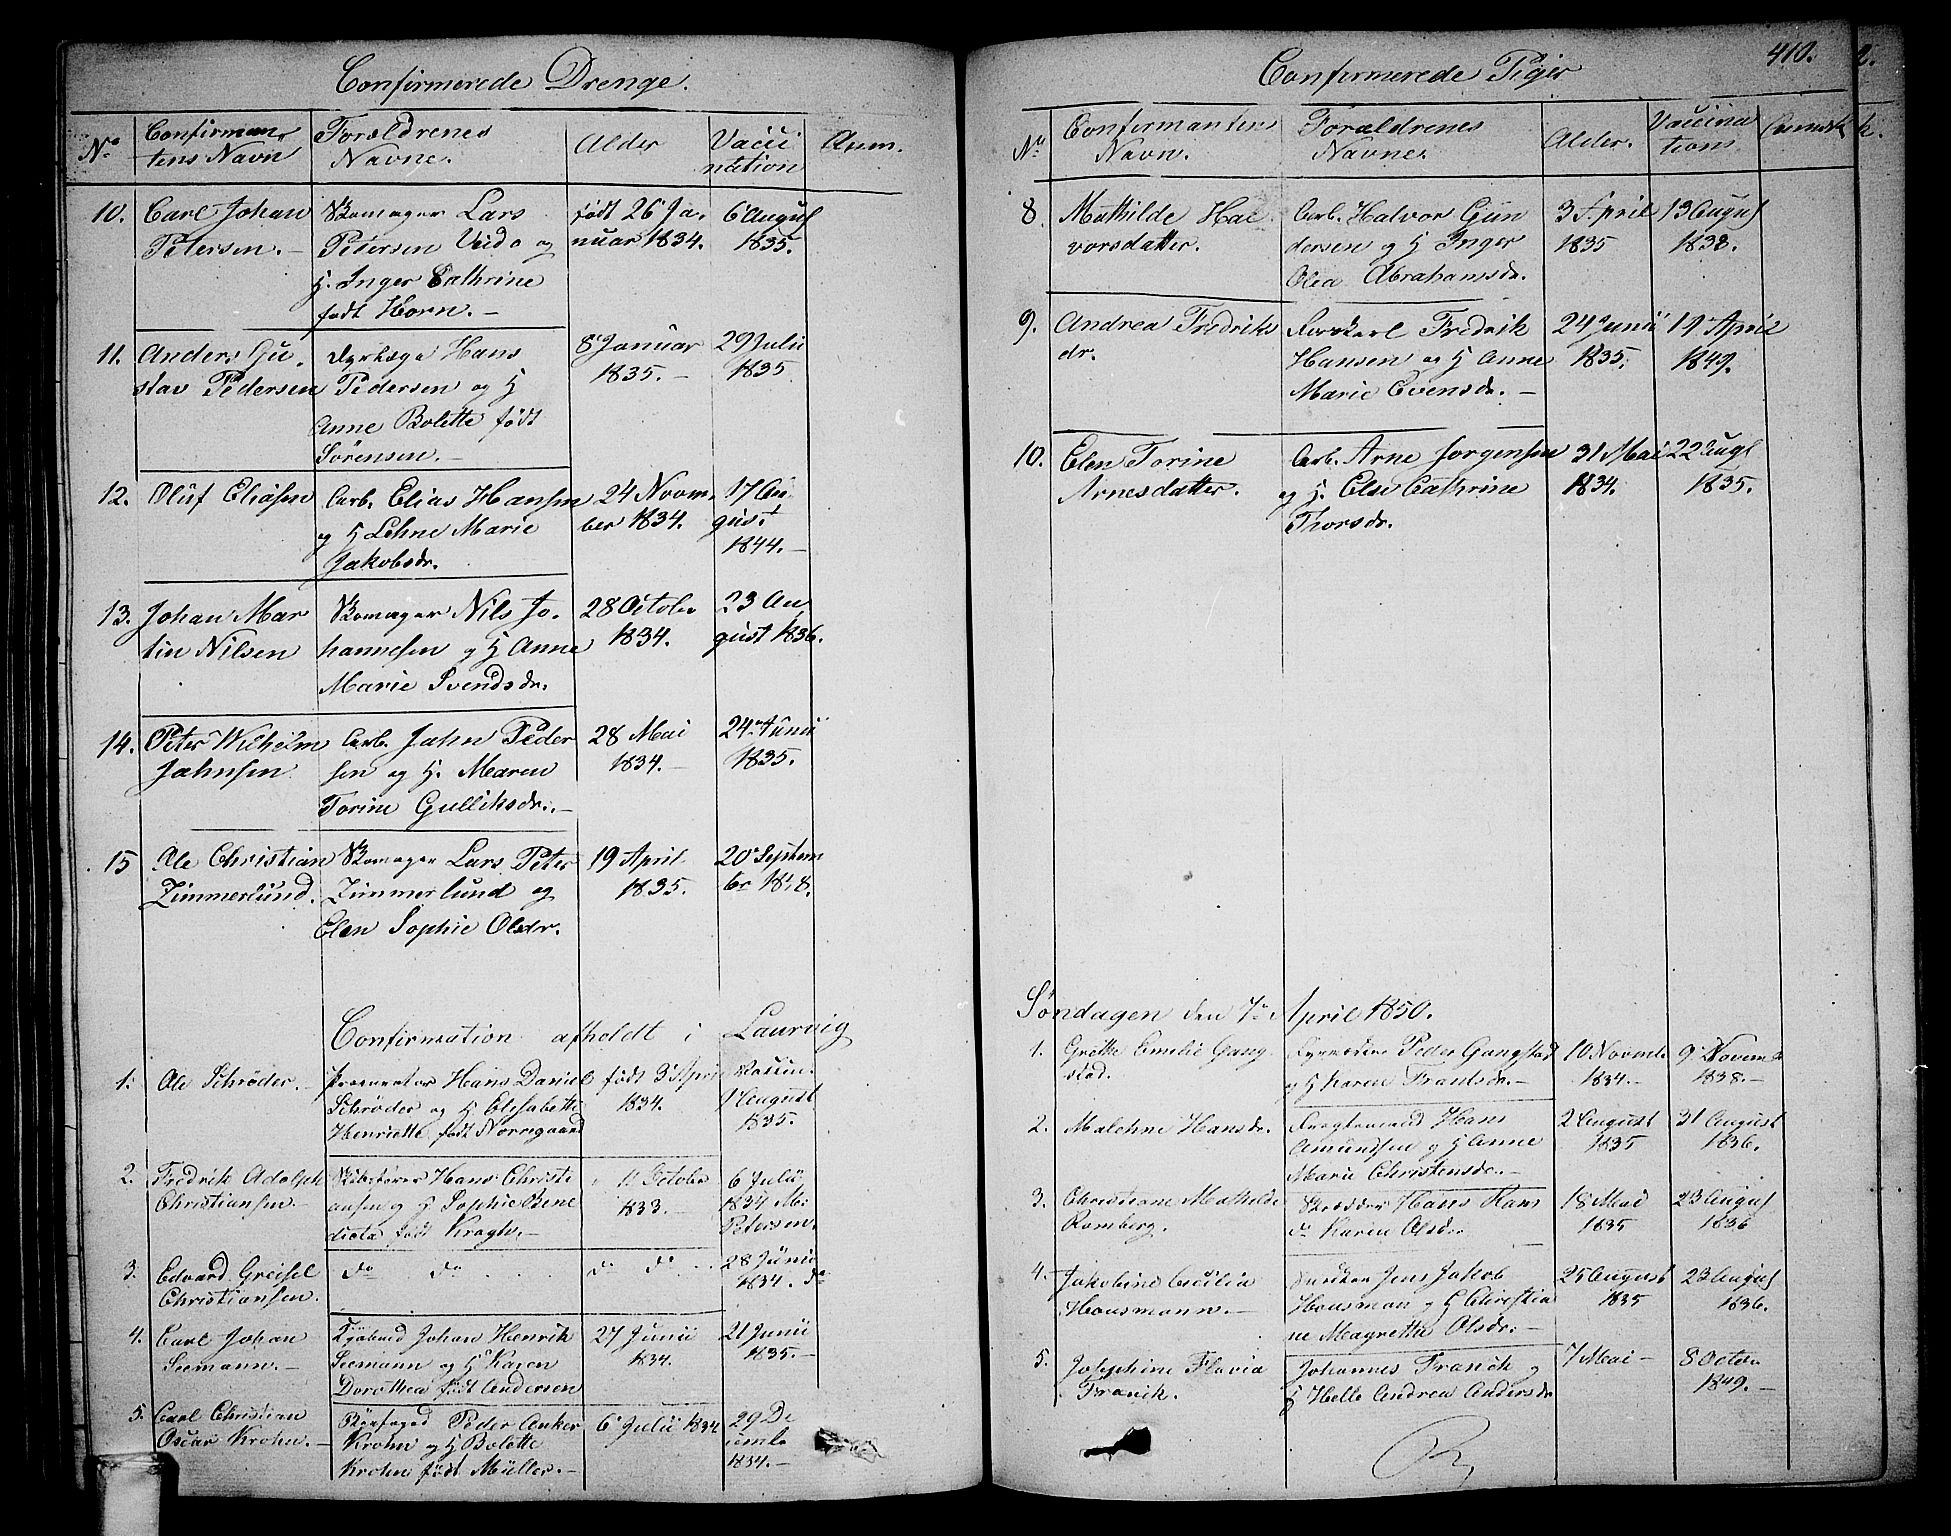 Confirmerede Drenge.
No
Confirman
tens Navn
Forældrenes
Navne.
Alder
Vacci
nation
Anm.
10. Carl Johan
Petersen.
Lars
Petersen og
H. Inger Cathrine
født Horn.
født 26 Ja
nuar 1834.
6 August
1835.
11. Anders Gu
stav Pedersen
Hans
Pedersen og H
Anne Bolette født
Sørensen.
8 Januar
1835.
29 Julii
1835
12. Oluf Eliasen
Arb. Elias Hansen
og H Lehne Marie
Jakobsdr.
24 Novem
ber 1834.
17 Au
gust
1844.
13. Johan Mar
tin Nilsen
Nils Jo
hannesen og H Anne
Marie Svendsdr.
28 October
1834.
23 Au
gust 1836.
14. Peter Wilhelm
Jahnsen
Arb. Jahn Peder
sen og H. Maren
Torine Gulliksdr.
28 Mai
1834.
24 Junii
1835.
15 Ole Christian
Zimmerlund.
Lars Peter
Zimmerlund og
Elen Sophie Olsdr.
19 April
1835.
20 Septem
ber
Confirmation afholdt i Laurvig
1. Ole Schrøder.
Procurator Hans Daniel
Schrøder og H Elisabeth
Henriette født Norregaard
født 3 April
1834.
Vaccin.
August
1835.
2. Fredrik Adolph
Christiansen.
Hans Christi
ansen og H Sophie Bene
dicta født Kragh.
October
1833.
6 Julii
1834 M.
Petersen.
3. Edvard Greisel
Christiansen.
do do
do do
28 Junii
1834. do
4. Carl Johan
Seemann.
Johan Henrik
Seemann og H Karen
Dorothea født Andersen
27 Junii
1834.
21 Junii
1835.
5. Carl Christian
Oscar Krohn.
Peder Anker
Krohn og H Bolette
Krohn født Müller.
6 Julii 1834
29 De
cemb
1834.
Confirmerede Piger
410.
No
Confirmantens
Navn.
Forældrenes
Navne
Alder.
Vaccina
tions
8. Mathilde Hal
vorsdatter.
Arb. Halvor Gun
dersen og H Inger
Olea Abrahamsdr.
3 April
1835
13 August
1838.
9. Andrea Fredriks
dr.
Fredrik
Hansen og H Anne
Marie Evensdr.
24 Junii
1835.
19 April
1849.
10. Elen Torine
Arnesdatter.
Arb. Arne Jørgensen
og H. Else Cathrine
Thorsdr.
31 Mai
1834.
22 Augs
1835.
Søndagen den 7de April 1850.
1. Grethe Emelie Gang
stad.
Peder Gangstad
og H Karen Frantsdr.
10 Novemb
1834.
9 Novemb
1838.
2. Malehne Hansdr.
Hans
Amundsen og H Anne
Marie Christensdr.
2 August
1835
31 August
1836.
3. Christiane Mathilde
Romberg.
Hans Rom
Karen Olsdr.
18 Mai
1835
23 August
1836
4. Jakobine Cecilia
Housmann.
Jens Jakob
Housman og H Christia
ne Magrethe Olsdr.
25 August
1835
23 August
1836.
5. Josephine Flavia
Franck.
Johannes Franck og
H Helle Andrea Andersdr
7 Mai
8 Octobr
1849.